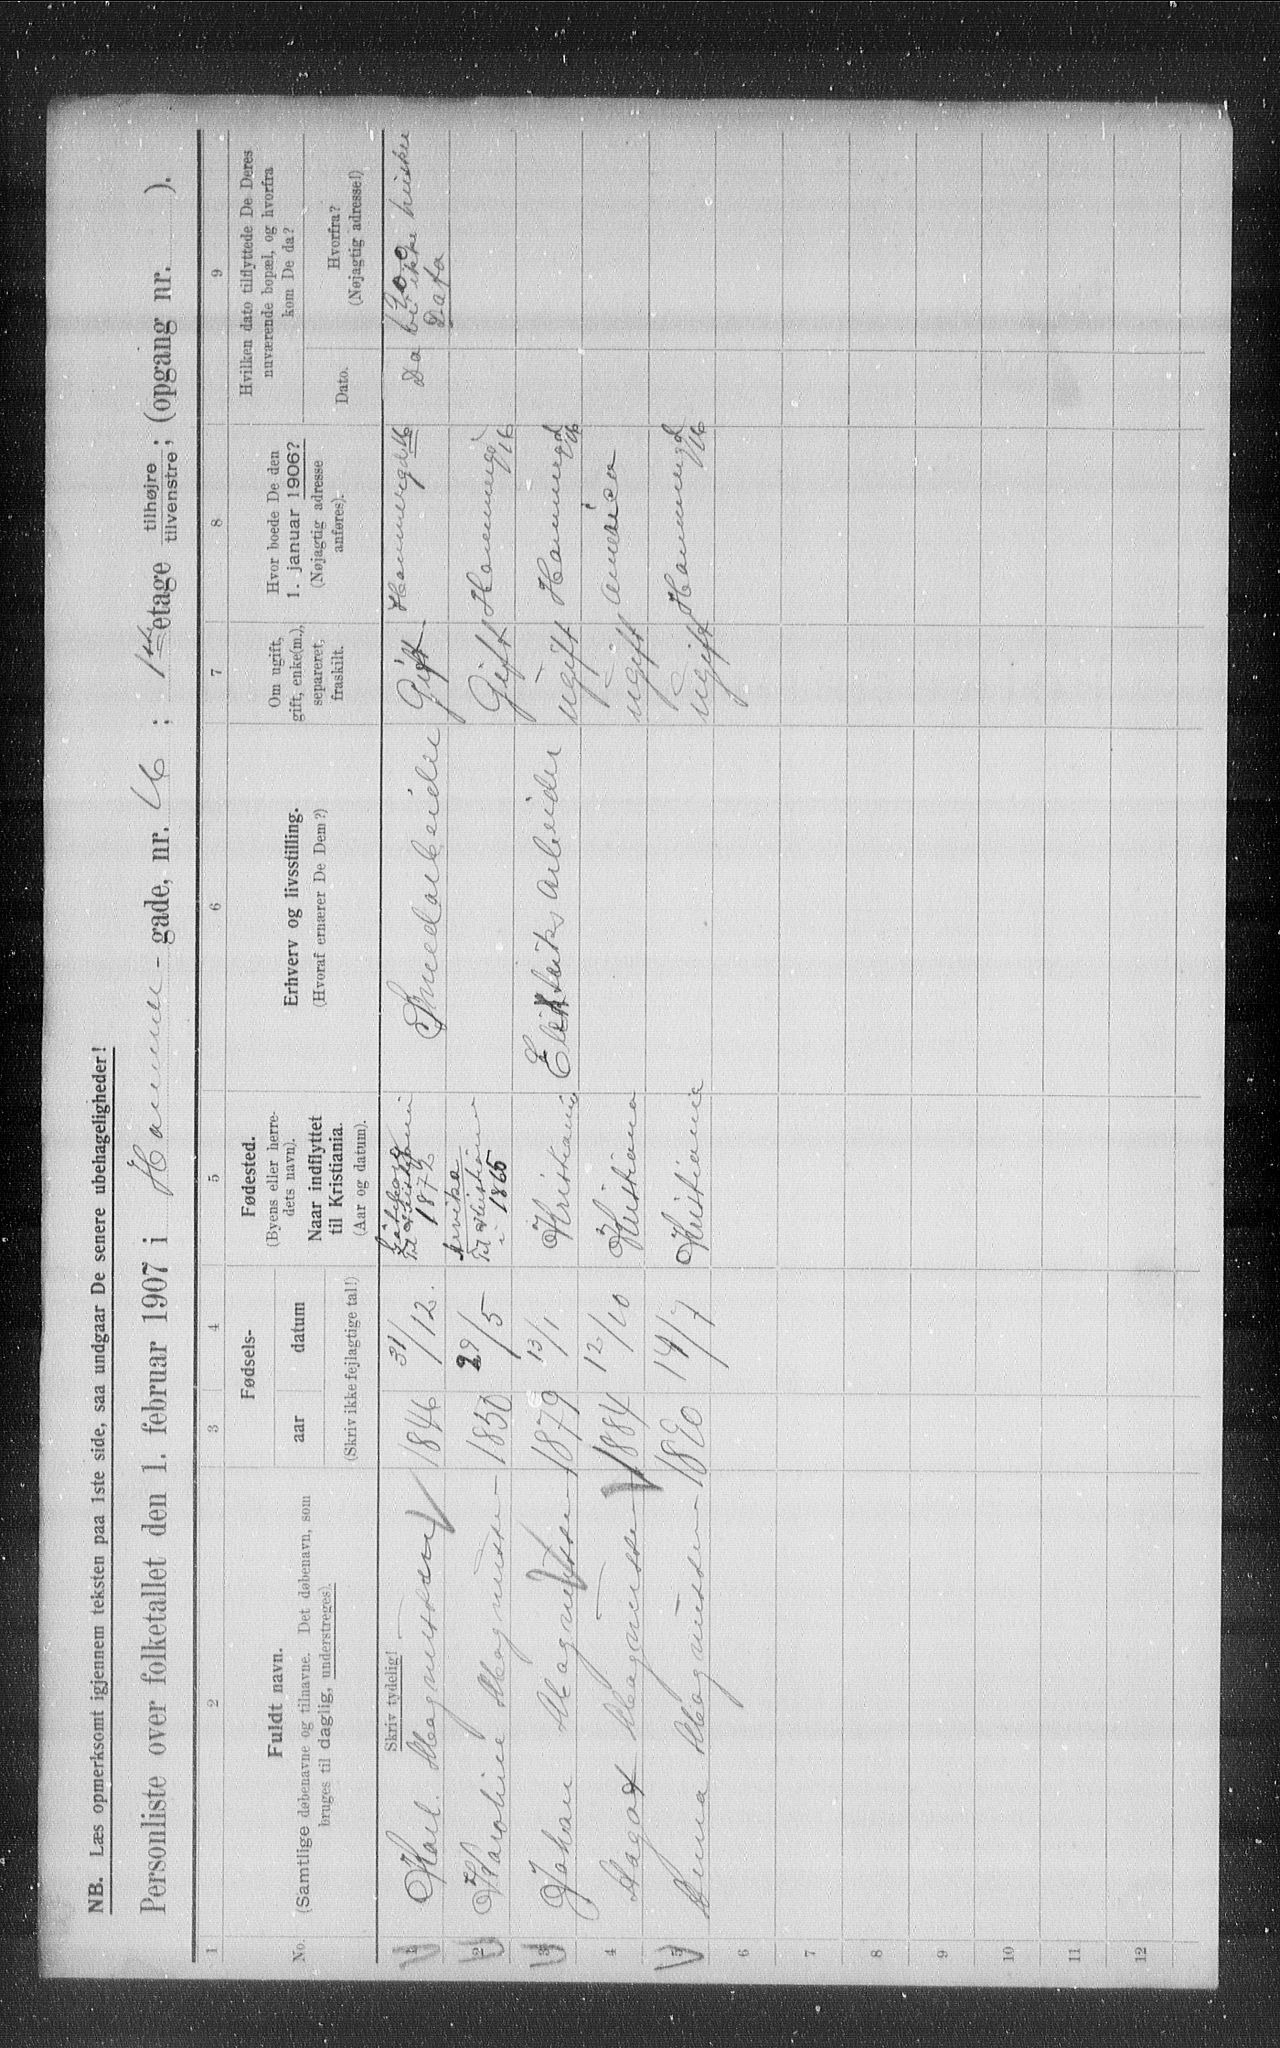 NB. Læs opmerksomt igjennem teksten paa 1ste side, saa undgaar De senere ubehageligheder!
Personliste over folketallet den 1. februar 1907 i Hammer - gade, nr. 16 ; 1ste etage tilhøjre tilvenstre ; (opgang nr. ).
1 2 3 4 5 6 7 8 9
No.
Fuldt navn.
(Samtlige døbenavne og tilnavne. Det døbenavn, som
bruges til daglig, understreges).
Fødsels-
aar datum
(Skriv ikke fejlagtige tal!)
Fødested.
(Byens eller herre-
dets navn).
Naar indflyttet
til Kristiania.
(Aar og datum).
Erhverv og livsstilling.
(Hvoraf ernærer De Dem?)
Om ugift,
gift, enke(m.),
separeret,
fraskilt.
Hvor boede De den
1. januar 1906?
(Nøjagtig adresse
anføres).
Hvilken dato tilflyttede De Deres
nuværende bopæl, og hvorfra
kom De da?
Dato.
Hvorfra?
(Nøjagtig adresse!)
Skriv tydelig!
1 Karl. Magnussen 1846 31/12. 1872 Smedarbeider Gift Hammergd 16 Da ikke huske
Data
2 Karoline Magnussen 1850 29/5 Arvika
Til Kristiania
i 1865 Gift Hammergd 16
3 Johan Magnussen 1879 13/1 Kristiania Elektriks Arbeider ugift Hammergd 16
4 Magnussen 1884 12/10 Kristiania ugift America
5 Anna Magnussen 1890 14/7 Kristiania ugift Hammergd 16
6
7
8
9
10
11
12